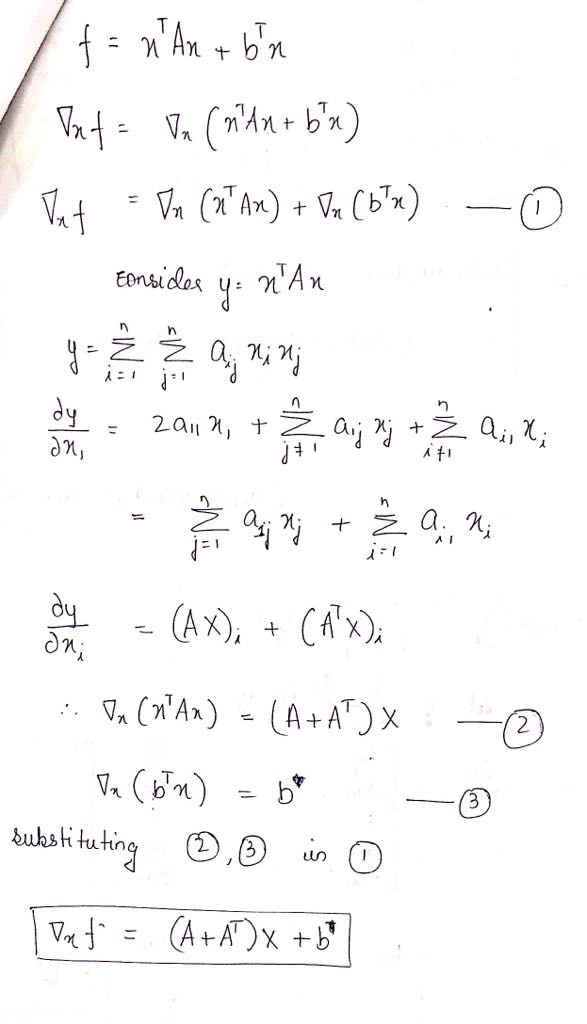 f = xᵀAx + bᵀx
∇ₓf = ∇ₓ (xᵀAx + bᵀx)
∇ₓf = ∇ₓ (xᵀAx) + ∇ₓ (bᵀx) — ①
consider y = xᵀAx
y = ∑_{i=1}^{n} ∑_{j=1}^{n} a_{ij} x_i x_j
∂y/∂x₁ = 2a₁₁ x₁ + ∑_{j≠1}^{n} a_{1j} x_j + ∑_{i≠1}^{n} a_{i1} x_i
= ∑_{j=1}^{n} a_{1j} x_j + ∑_{i=1}^{n} a_{i1} x_i
∂y/∂x_i = (AX)_i + (AᵀX)_i
∴ ∇ₓ (xᵀAx) = (A+Aᵀ) X — ②
∇ₓ (bᵀx) = b — ③
substituting ②, ③ in ①
∇ₓf = (A+Aᵀ) X + b